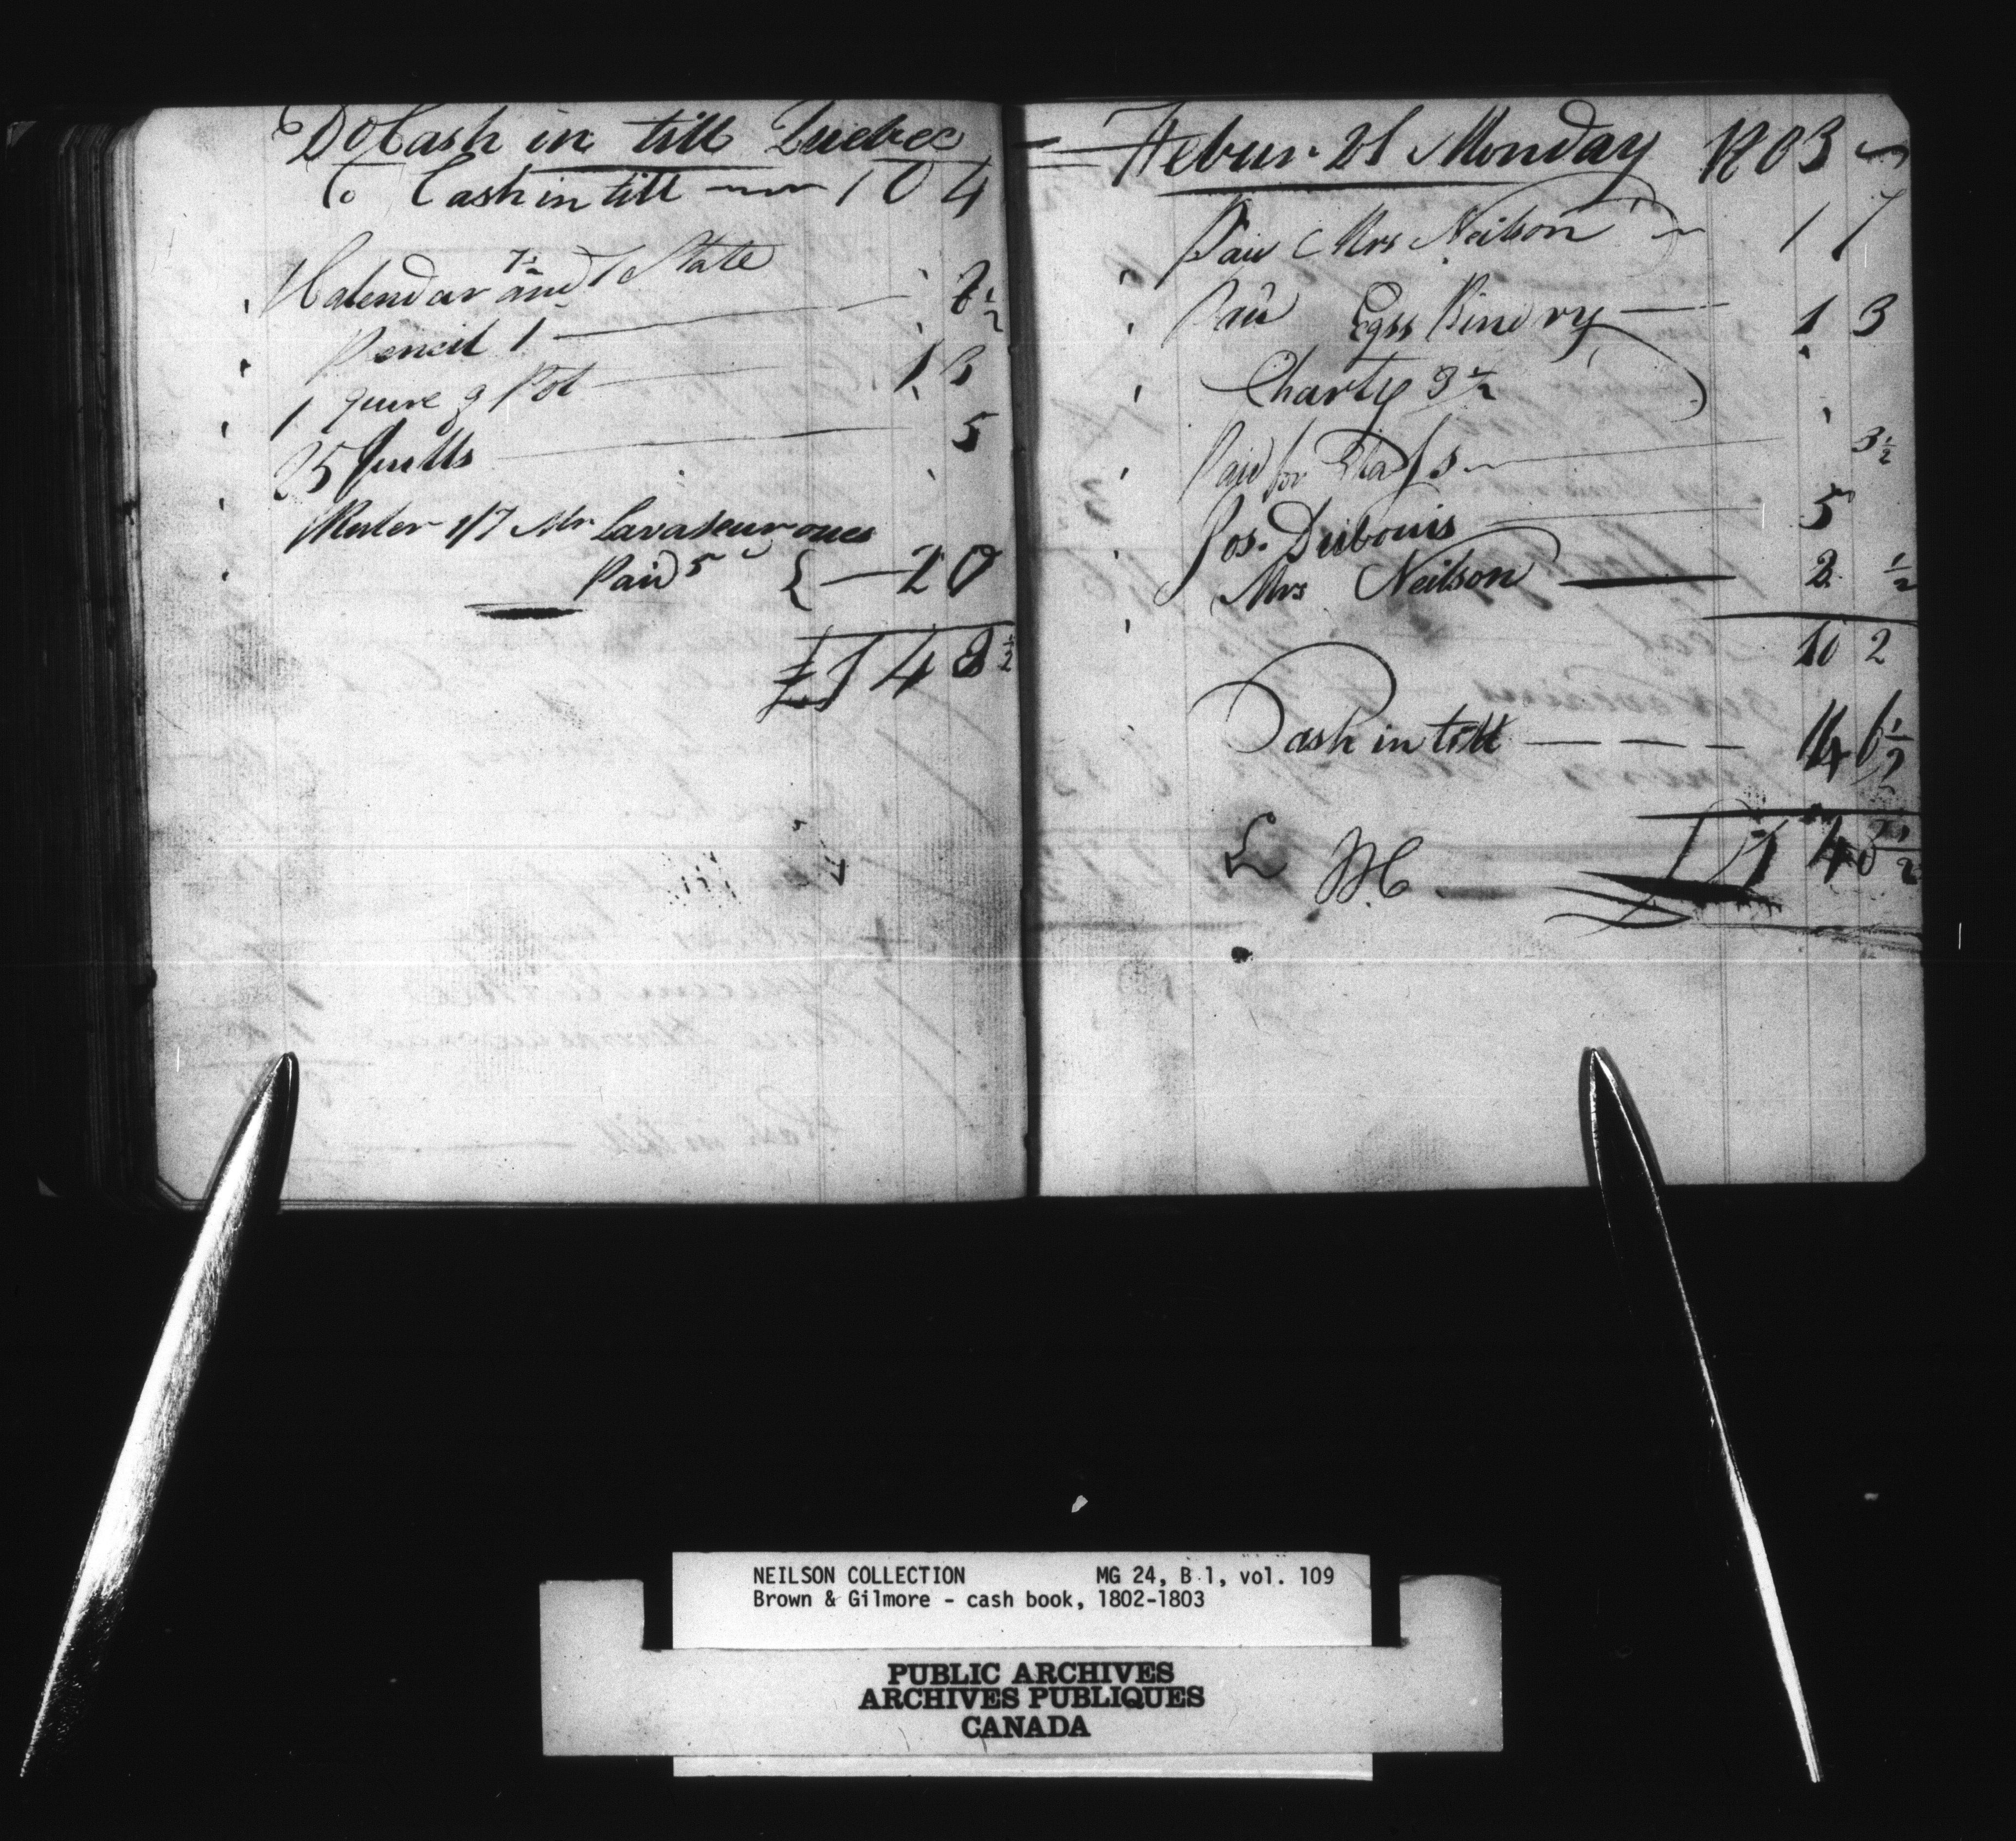 Do Cash in till Quebec
To Cash in till 10 4
Kalendar 7½ and 1 Slate
Pencil 1 8½
1 quire of Pot 1 3
25 Quills 5
Ruler 1/7 Mr Lavaseur owes
Paid 5 { 20
£1 4 8½
Febur. 21 Monday 1803
Paid Mrs Neilson 1 7
Paid Eggs Bindry 1 3
Charty 3½
Paid for 3½
Jos. Dubouis 5
Mrs Neilson 2 ½
10 2
Cash in till 14 6½
£ 1 4 8½
NEILSON COLLECTION MG 24, B 1, vol. 109
Brown & Gilmore - cash book, 1802-1803
PUBLIC ARCHIVES
ARCHIVES PUBLIQUES
CANADA